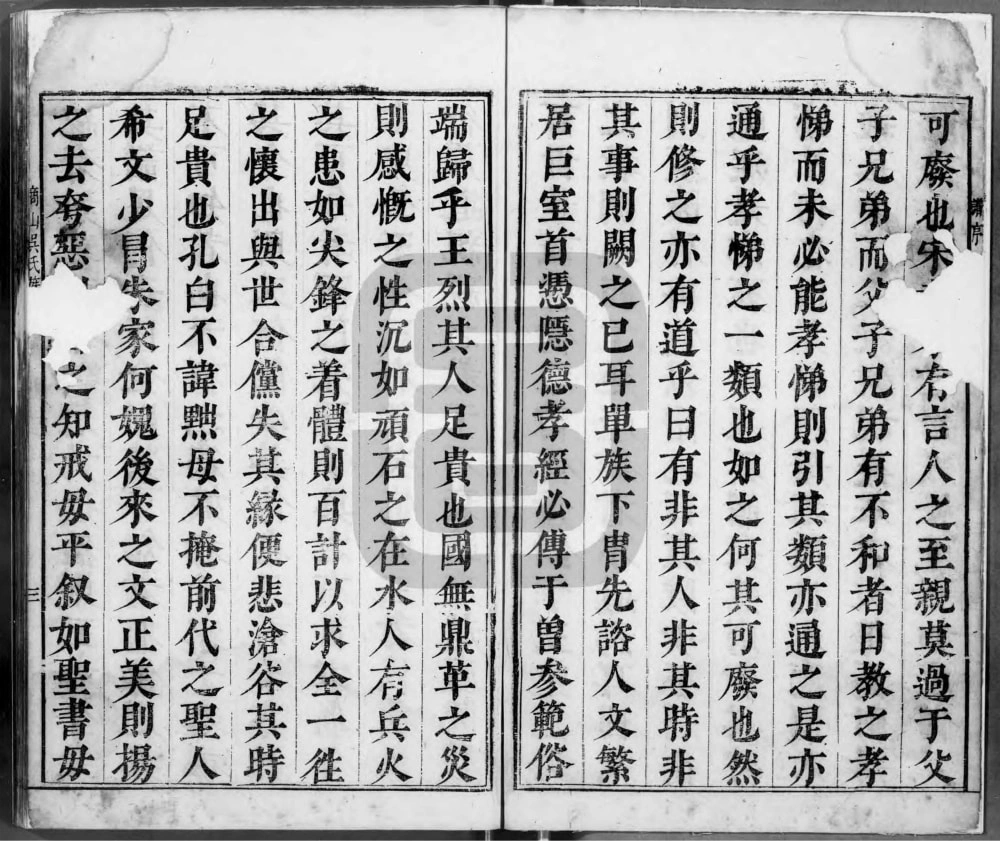 譜序
可廢也宋有言人之至親莫過于父
子兄弟而父子兄弟有不和者日教之孝
悌而未必能孝悌則引其類亦通之是亦
通乎孝悌之一類也如之何其可廢也然
則修之亦有道乎曰有非其人非其時非
其事則闕之已耳單族下胄先諮人文繁
居巨室首憑隱德孝經必傳于曾参範俗
端歸乎王烈其人足貴也國無鼎革之災
則感慨之性沉如頑石之在水人有兵火
之患如尖鋒之着體則百計以求全一徃
之懷出與世合儻失其緣便悲滄谷其時
足貴也孔白不諱黥母不掩前代之聖人
希文少冒朱家何媿後來之文正美則揚
之去夸惡之知戒毋平叙如聖書毋
山吳氏
三